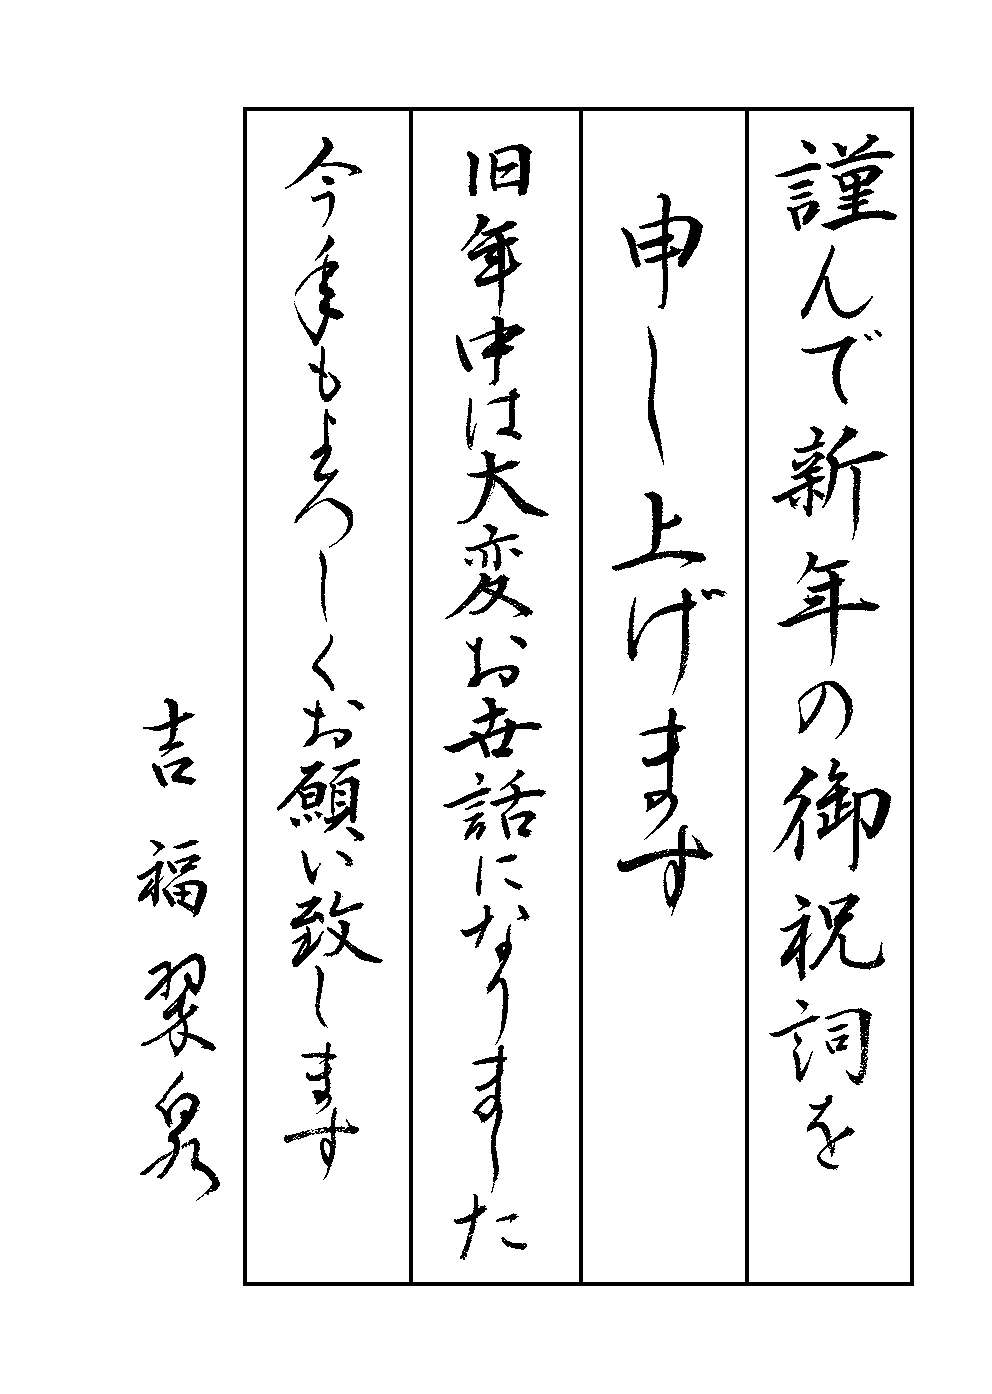 謹んで新年の御祝詞を
申し上げます
旧年中は大変お世話になりました
今年もよろしくお願い致します
吉福翠泉